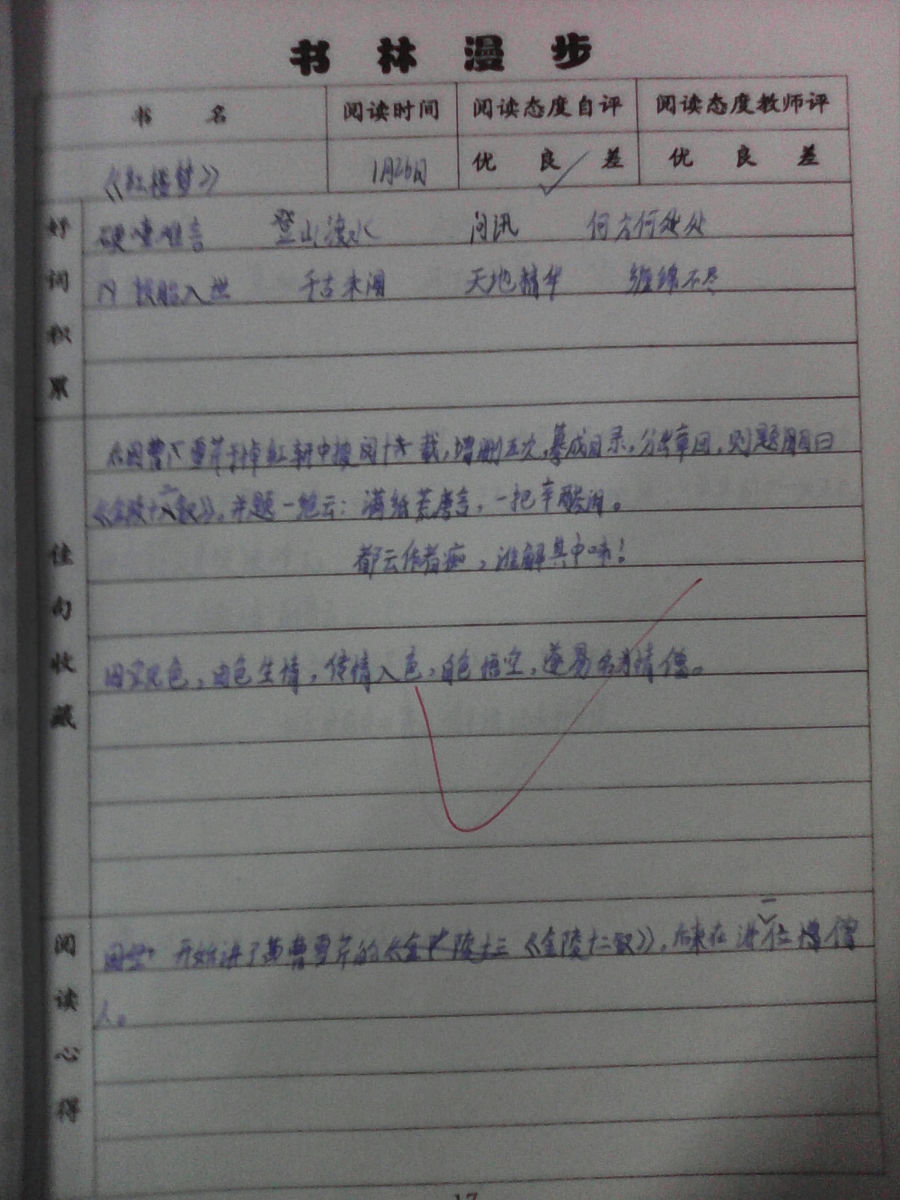 书 林 漫 步
书 名 阅读时间 阅读态度自评 阅读态度教师评
《红楼梦》 1月26日 优 良 差 优 良 差
好词积累
登山渡水 问讯 何方何处
投胎入世 千古未闻 天地精华 缠绵不尽
佳句收藏
曹雪芹于悼红轩中披阅十载,增删五次,纂成目录,分出章回,则题 曰
《金陵十二钗》,并题一绝云:满纸荒唐言,一把辛酸泪。
都云作者痴,谁解其中味!
因空见色,由色生情,传情入色,自色悟空,遂易名为情僧。
阅读心得
开始讲了 曹雪芹的《金 陵十二《金陵十二钗》,后来在讲一位 僧
人。
17